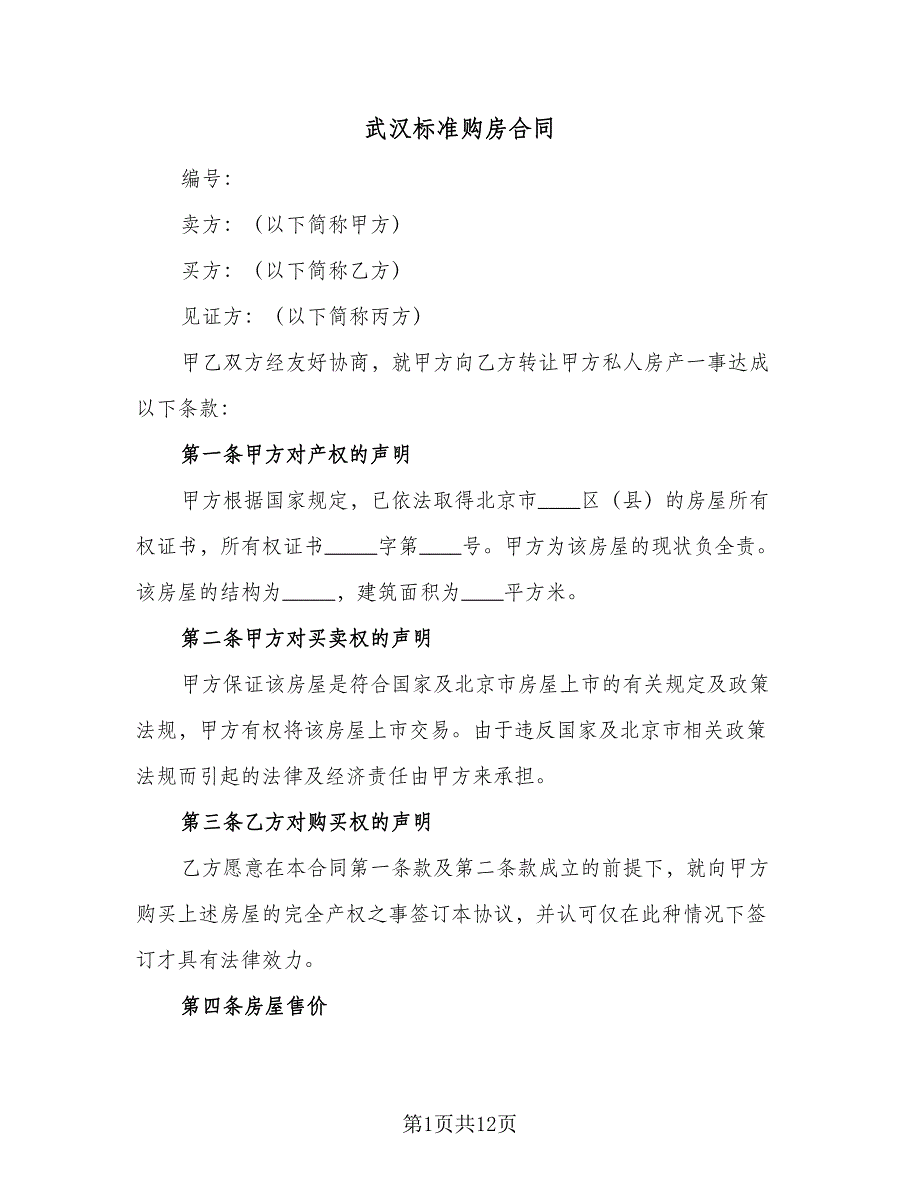 武汉标准购房合同
编号：
卖方：（以下简称甲方）
买方：（以下简称乙方）
见证方：（以下简称丙方）
甲乙双方经友好协商，就甲方向乙方转让甲方私人房产一事达成
以下条款：
第一条甲方对产权的声明
甲方根据国家规定，已依法取得北京市____区（县）的房屋所有
权证书，所有权证书_____字第____号。甲方为该房屋的现状负全责。
该房屋的结构为_____，建筑面积为____平方米。
第二条甲方对买卖权的声明
甲方保证该房屋是符合国家及北京市房屋上市的有关规定及政策
法规，甲方有权将该房屋上市交易。由于违反国家及北京市相关政策
法规而引起的法律及经济责任由甲方来承担。
第三条乙方对购买权的声明
乙方愿意在本合同第一条款及第二条款成立的前提下，就向甲方
购买上述房屋的完全产权之事签订本协议，并认可仅在此种情况下签
订才具有法律效力。
第四条房屋售价
第1页共12页